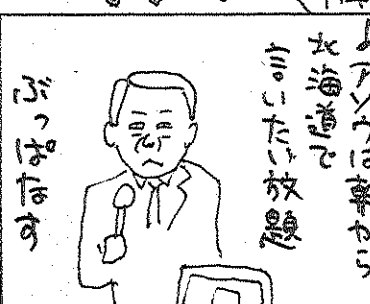 ♪アソウは楽から
北海道で
言いたい放題
ぶっぱなす